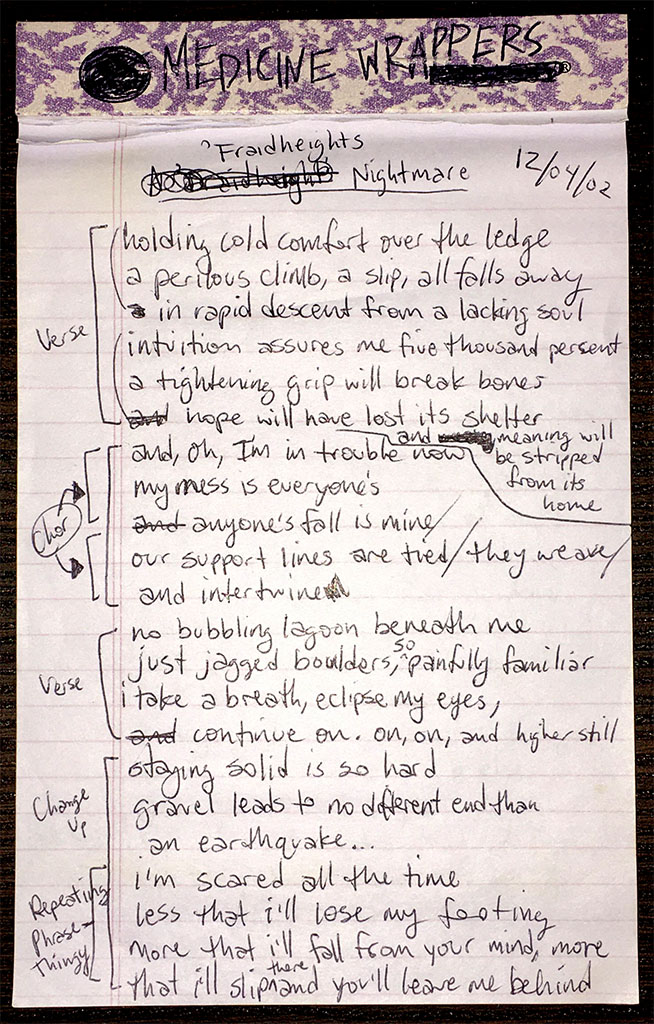 MEDICINE WRAPPERS
'Fraidheights
Nightmare
12/04/02
Verse
holding cold comfort over the ledge
a perilous climb, a slip, all falls away
in rapid descent from a lacking soul
intuition assures me five thousand persent
a tightening grip will break bones
and hope will have lost its shelter
and meaning will
be stripped
from its
home
Chor
and, oh, I'm in trouble now
my mess is everyone's
and anyone's fall is mine/
our support lines are tied/they weave/
and intertwine
Verse
no bubbling lagoon beneath me
just jagged boulders, so painfully familiar
i take a breath, eclipse my eyes,
and continue on. on, on, and higher still
Change
Up
staying solid is so hard
gravel leads to no different end than
an earthquake...
Repeating
Phrase-
Thingy
i'm scared all the time
less that i'll lose my footing
more that i'll fall from your mind, more
that i'll slip there and you'll leave me behind